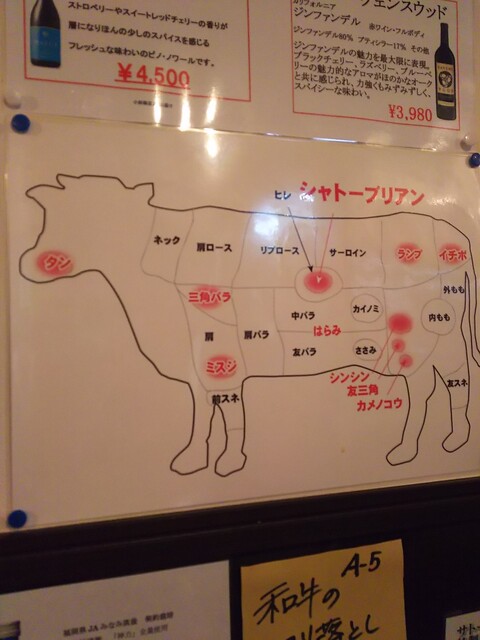 ストロベリーやスイートレッドチェリーの香りが
層になりほんの少しのスパイスを感じる
フレッシュな味わいのピノ・ノワールです。
¥4,500
フェンスウッド
カリフォルニア
ジンファンデル 赤ワイン・フルボディ
ジンファンデル80% プティシラー17% その他
ジンファンデルの魅力を最大限に表現。
ブラックチェリー、ラズベリー、ブルーベ
リーの魅力的なアロマがほのかなオーク
と共に感じられ、力強くもみずみずしく、
スパイシーな味わい。
¥3,980
ヒレ シャトーブリアン
ネック 肩ロース リブロース サーロイン ランプ イチボ
タン
三角バラ 外もも
中バラ カイノミ 内もも
肩 肩バラ はらみ
ミスジ 友バラ ささみ
シンシン
友三角
カメノコウ
前スネ 友スネ
A-5
和牛の
り落とし
福岡県JAみなみ筑後 契約農場